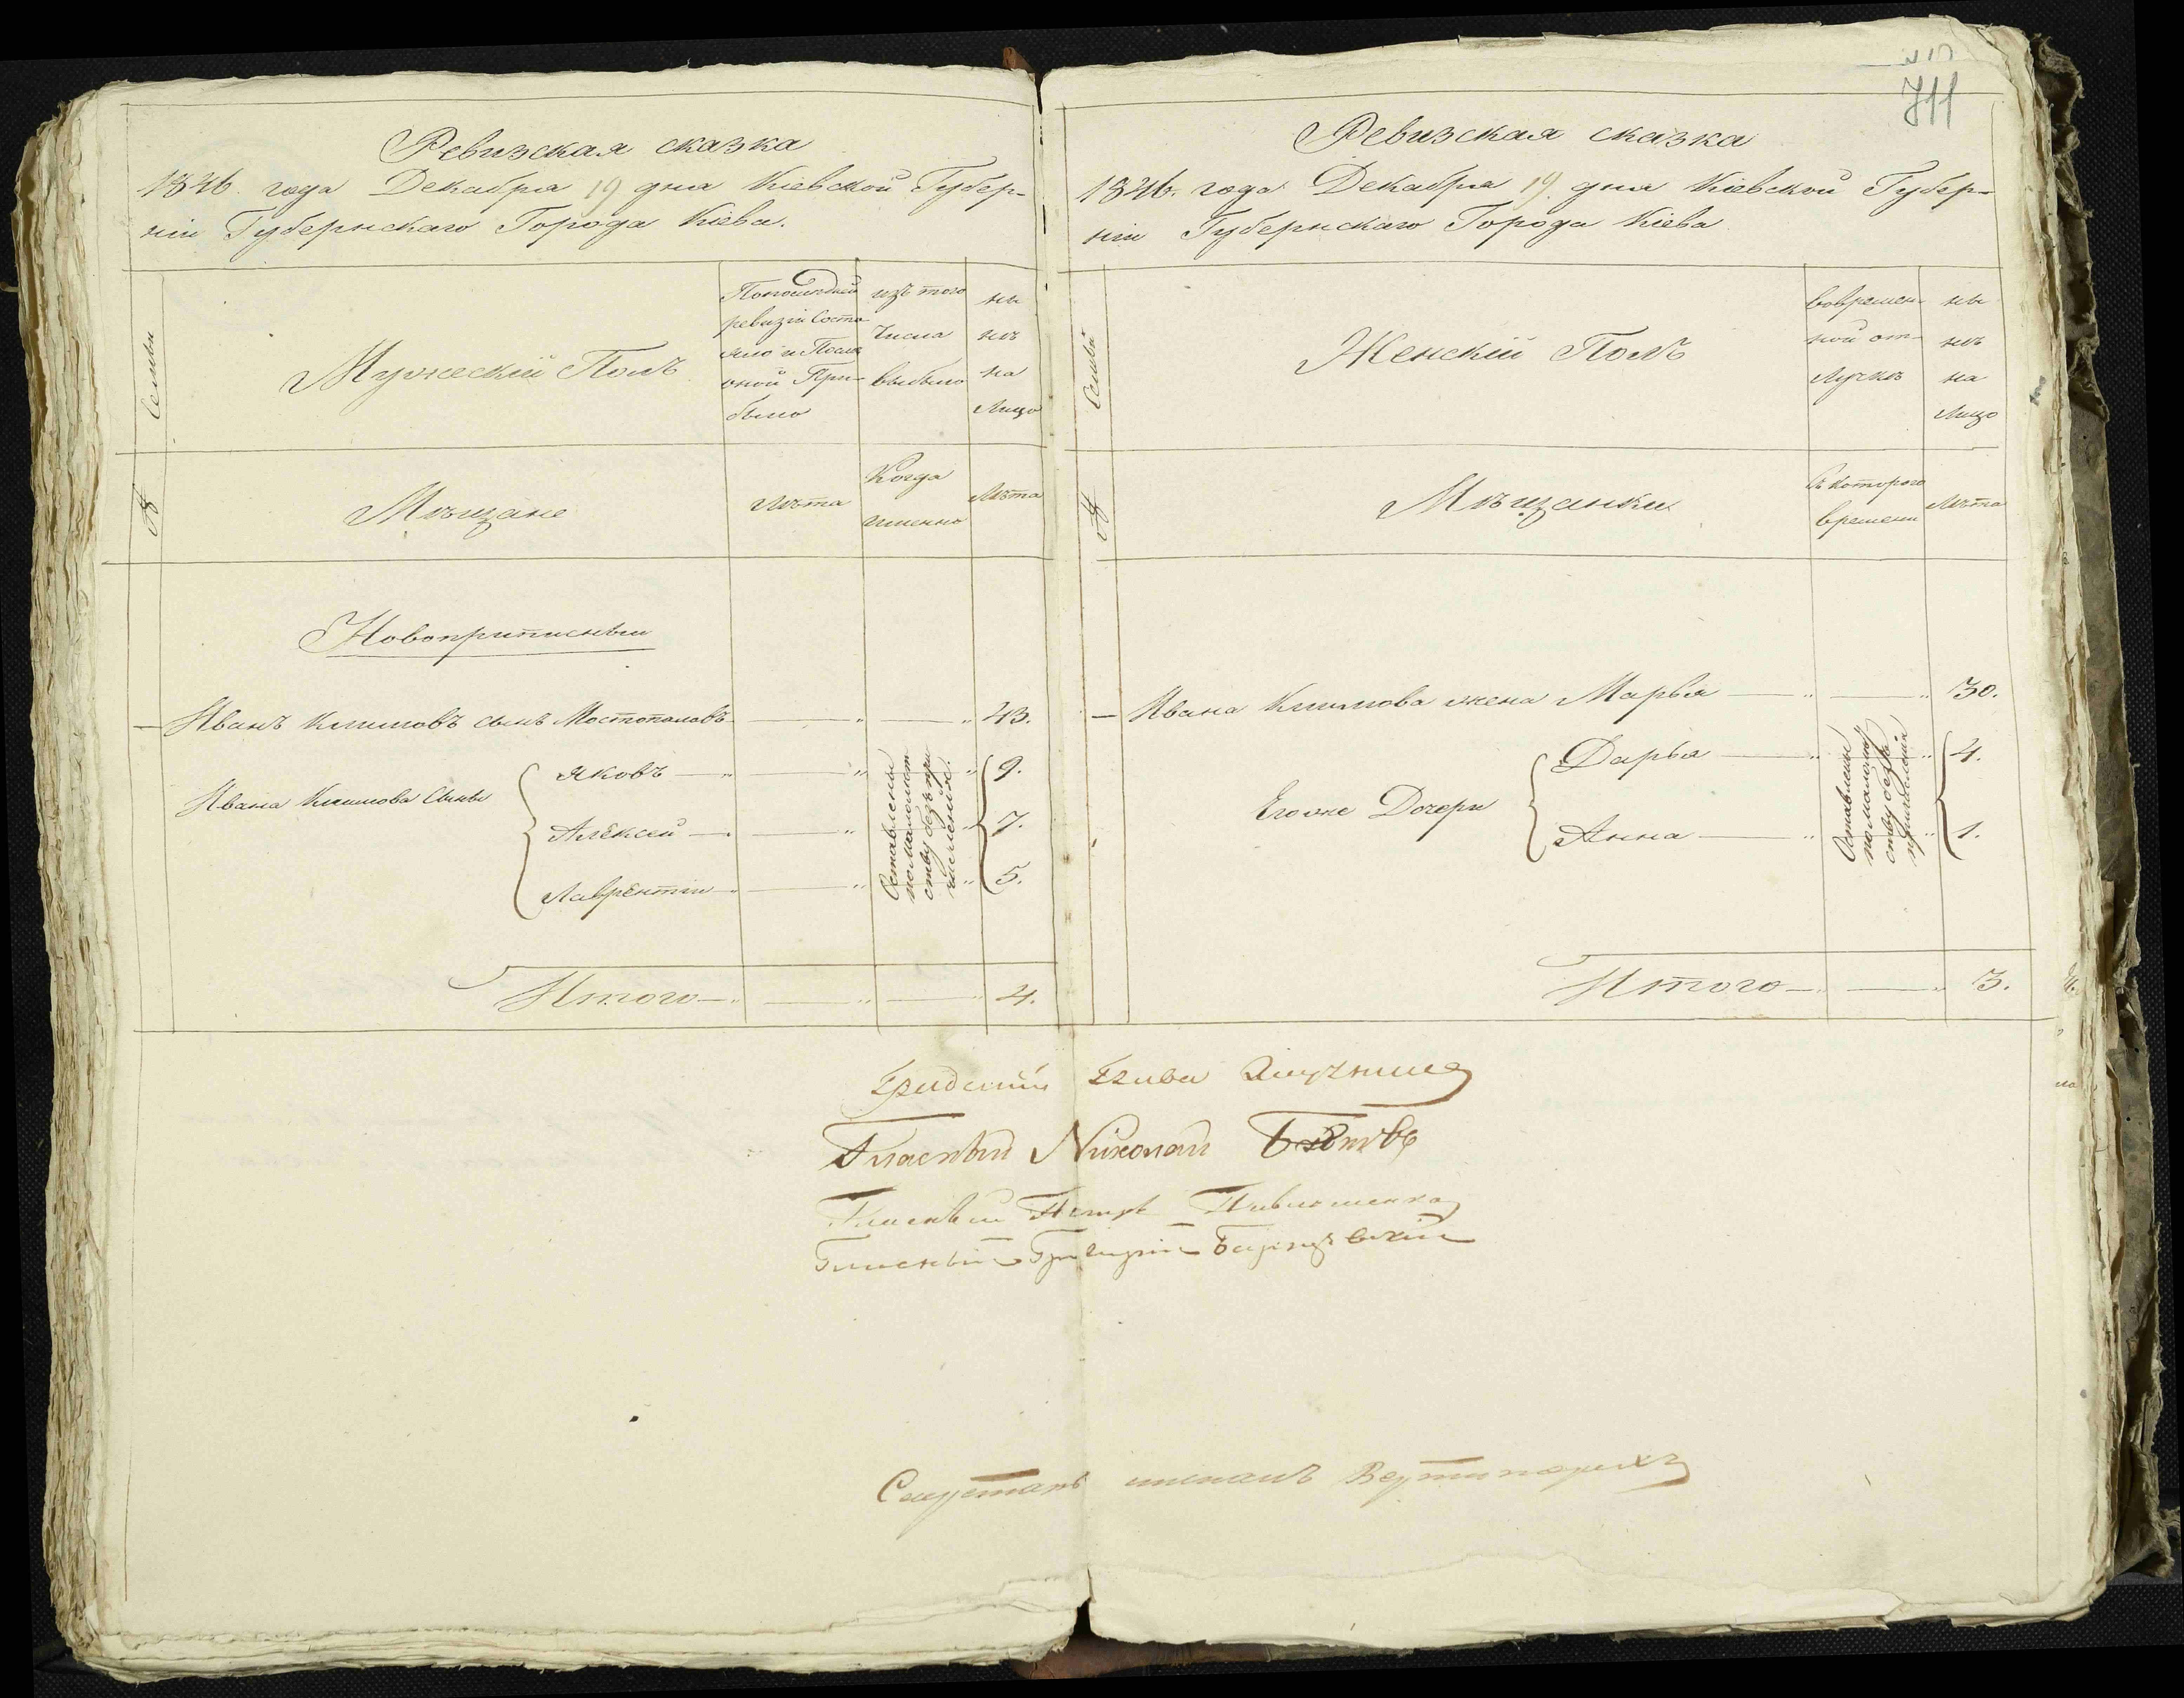 711
Ревизская сказка
1826. года Декабря 19 дня Кіевской Губер-
ніи Губернскаго Города Кіева.
Семьи
Мужескій Полъ
Попоследней
ревизіи Состо
яло и После
оной При-
было
изъ того
Числа
выбыло
ны
нѣ
на
Лицо
№
Мѣщане
Лѣта
Когда
именно
Лѣта
Новоприписный
— Иванъ Климовъ сынъ Мостопаловъ — " — " 43.
Ивана Климова Сыны
Яковъ — " — " " 9.
Алексей — " — " " 7.
Лаврентій — " — " " 5.
Оставлены
помалолет
ству безъ при
численія.
Итого — " — " — " 4.
Ревизская сказка
1826. года Декабря 19. дня Кіевской Губер-
ніи Губернскаго Города Кіева
Семьи
Женскій Полъ
вовремен-
ной от-
лучкѣ
ны
нѣ
на
Лицо
№
Мѣщанки
Съ которого
времени
Лѣта
— Ивана Климова жена Марья — " — " 30.
Егоже Дочери
Дарья — " " 4.
Анна — " " 1.
Оставлены
помалолет
ству безъ
причисленія
Итого — " — " 3.
Градскій Глава
Гласный Николай
Гласный Петръ
Гласный Григорій